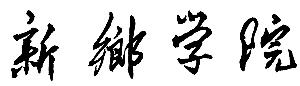 新鄉学院